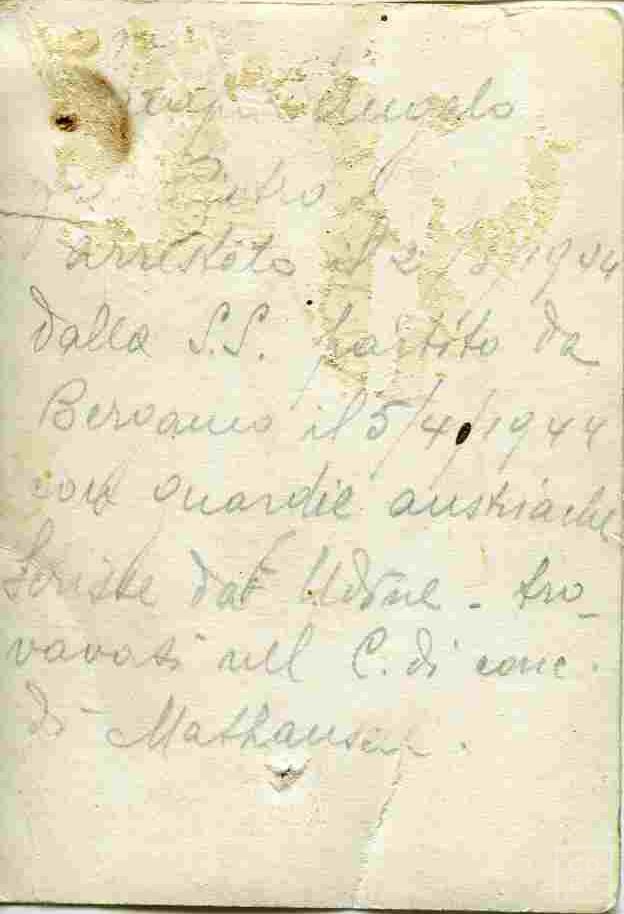 Angelo
Pietro
arrestato il 2/3/1944
dalle S.S. partito da
Bergamo il 5/4/1944
con guardie austriache
da Udine - tro-
vavasi nel C. di conc.
di Mathausen.